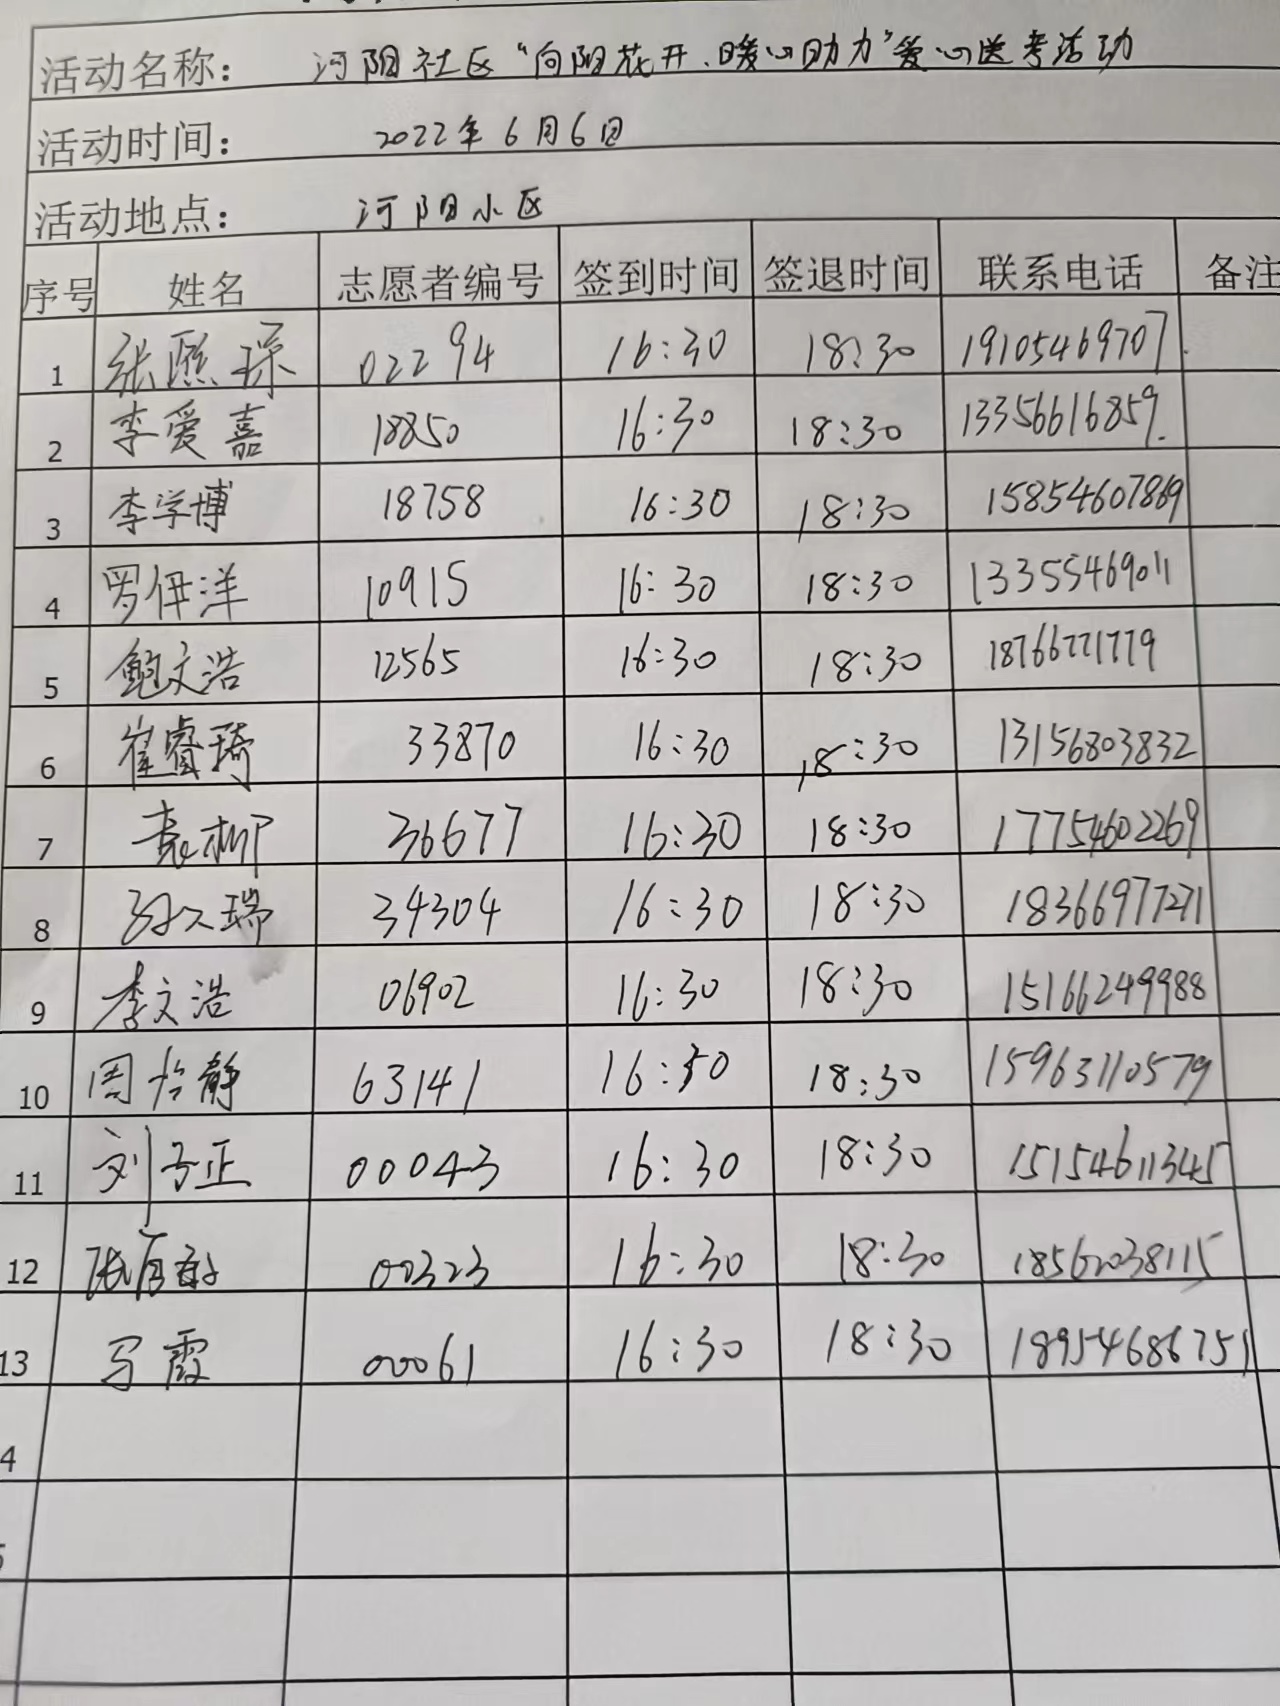 活动名称： 河阳社区“向阳花开、暖心助力”爱心送考活动
活动时间： 2022年6月6日
活动地点： 河阳小区
序号 姓名 志愿者编号 签到时间 签退时间 联系电话 备注
1 张熙琛 02294 16:30 18:30 19105469707
2 李爱嘉 18850 16:30 18:30 13356616859
3 李学博 18758 16:30 18:30 15854607869
4 罗伊洋 10915 16:30 18:30 13355469011
5 鲍文浩 12565 16:30 18:30 18766771779
6 崔睿琦 33870 16:30 18:30 13156803832
7 袁柳 36677 16:30 18:30 17754602269
8 瑞 34304 16:30 18:30 18366977271
9 李文浩 06902 16:30 18:30 15166249988
10 周怡静 63141 16:30 18:30 15963110579
11 刘子正 00043 16:30 18:30 15154611345
12 张 00323 16:30 18:30 18562038115
13 马霞 00061 16:30 18:30 18954686751
4